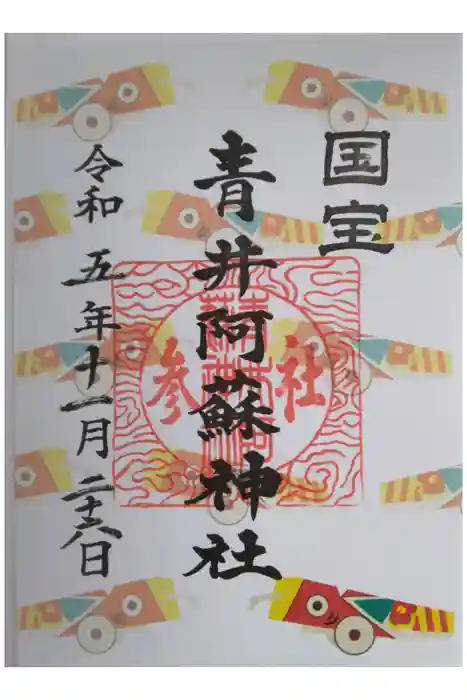 国宝
青井阿蘇神社
令和五年十一月二十六日
社参